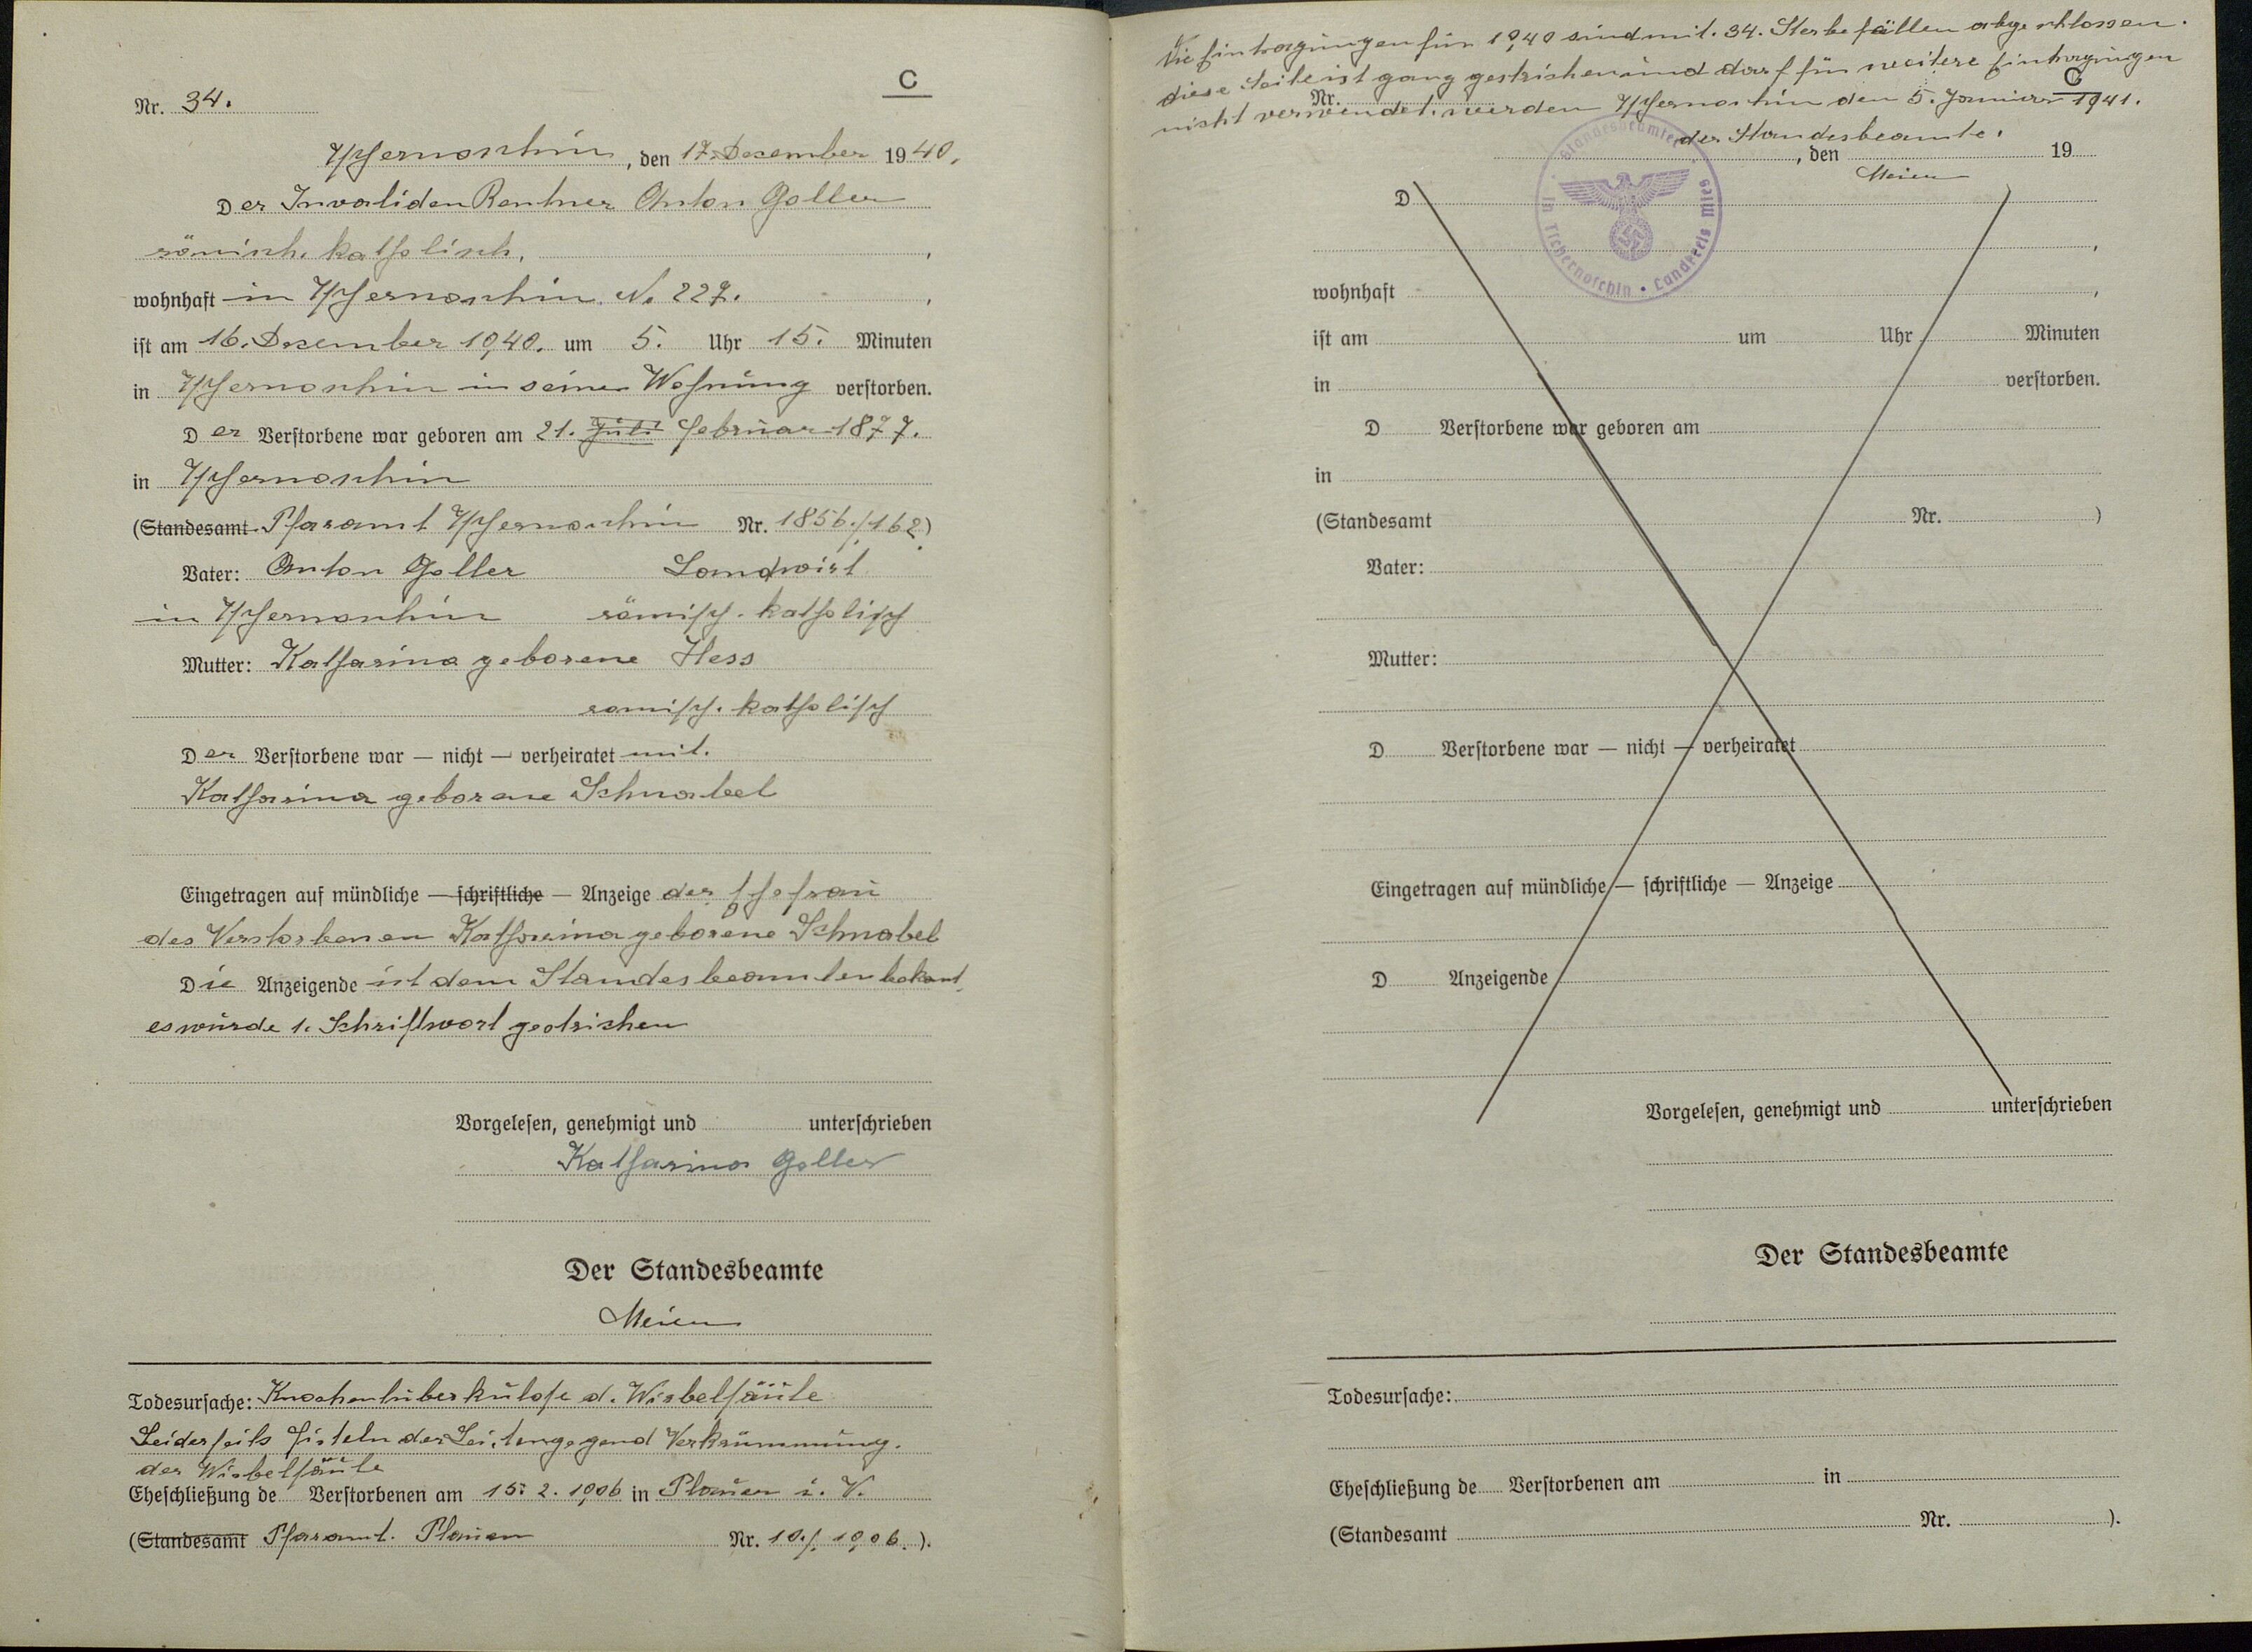 C
Nr. 34.
Tschernoschin, den 17. Dezember 1940.
Der Invaliden Rentner Anton Goller
römisch. katholisch.,
wohnhaft in Tschernoschin No 227.,
ist am 16. Dezember 1940. um 5. Uhr 15. Minuten
in Tschernoschin in seiner Wohnung verstorben.
Der Verstorbene war geboren am 21. Juli Februar 1877.
in Tschernoschin
(Standesamt Pfaramt Tschernoschin Nr. 1856./162)
Vater: Anton Goller Landwirt
in Tschernoschin römisch. katholisch
Mutter: Katharina geborene Hess
römisch. katholisch
Der Verstorbene war — nicht — verheiratet mit.
Katharina geborene Schnabel
Eingetragen auf mündliche — schriftliche — Anzeige der Ehefrau
des Verstorbenen Katharina geborene Schnabel
Die Anzeigende ist dem Standesbeamten bekant
es wurde 1. Schriftwort gestrichen
Vorgelesen, genehmigt und unterschrieben
Katharina Goller
Der Standesbeamte
Todesursache: Knochentuberkulose d. Wirbelsäule
Fisteln der Leistengegend Verkrümmung.
der Wirbelsäule
Eheschließung de Verstorbenen am 15. 2. 1906 in Plauen i. V.
(Standesamt Pfaramt. Plauen Nr. 10./. 1906.).
Die Eintragungen für 1940 sind mit. 34. Sterbefällen abgeschlossen.
diese Seite ist ganz gestrichen und darf für weitere Eintragungen
C
Nr.
nicht verwendet. werden Tschernoschin den 5. Januar 1941.
der Standesbeamte.
, den 19
Standesbeamte in Tschernoschin • Landkreis Mies
D
,
wohnhaft ,
ist am um Uhr Minuten
in verstorben.
D Verstorbene war geboren am
in
(Standesamt Nr. )
Vater:
Mutter:
D Verstorbene war — nicht — verheiratet
Eingetragen auf mündliche — schriftliche — Anzeige
D Anzeigende
Vorgelesen, genehmigt und unterschrieben
Der Standesbeamte
Todesursache:
Eheschließung de Verstorbenen am in
(Standesamt Nr. ).